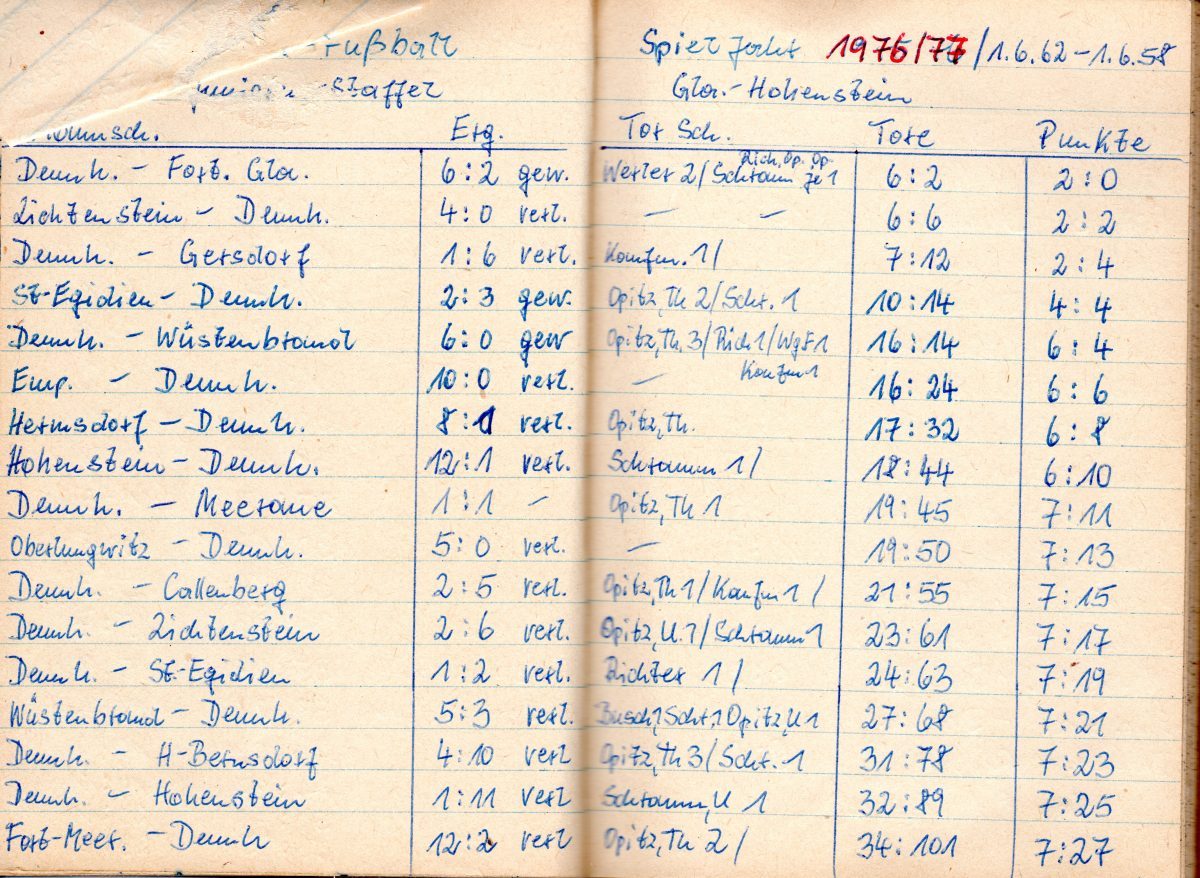 Fußball Spieljahr 1976/77 / 1.6.62 – 1.6.58
Staffel Gla.-Hohenstein
Mannsch. Erg. Tor Sch. Tore Punkte
Dennh. – Fort. Gla. 6:2 gew. Werler 2/ Schramm Rich, Op. Op. je 1 6:2 2:0
Lichtenstein – Dennh. 4:0 verl. – – 6:6 2:2
Dennh. – Gersdorf 1:6 verl. Kaufm. 1/ 7:12 2:4
St-Egidien – Dennh. 2:3 gew. Opitz, Th 2/ Schr. 1 10:14 4:4
Dennh. – Wüstenbrand 6:0 gew Opitz, Th. 3/ Rich 1/ 1 Kaufm 1 16:14 6:4
Emp. – Dennh. 10:0 verl. – 16:24 6:6
Hermsdorf – Dennh. 8:1 verl. Opitz, Th. 17:32 6:8
Hohenstein – Dennh. 12:1 verl. Schramm 1/ 18:44 6:10
Dennh. – Meerane 1:1 – Opitz, Th 1 19:45 7:11
Oberlungwitz – Dennh. 5:0 verl. – 19:50 7:13
Dennh. – Callenberg 2:5 verl. Opitz, Th 1/ Kaufm 1/ 21:55 7:15
Dennh. – Lichtenstein 2:6 verl. Opitz, U. 1/ Schramm 1 23:61 7:17
Dennh. – St-Egidien 1:2 verl. Richter 1/ 24:63 7:19
Wüstenbrand – Dennh. 5:3 verl. Busch 1, Schr. 1 Opitz, U 1 27:68 7:21
Dennh. – H-Bernsdorf 4:10 verl Opitz, Th 3/ Schr. 1 31:78 7:23
Dennh. – Hohenstein 1:11 verl Schramm, U 1 32:89 7:25
Fort-Meer. – Dennh 12:2 verl Opitz, Th 2/ 34:101 7:27